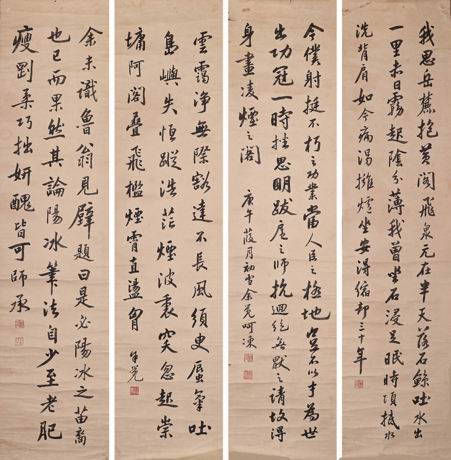 我思岳麓抱黄阁飛泉元在半天落石鲸吐水出
一里赤日霧起陰分薄我曾坐石浸足眠時項抵水
洗背肩如今病渴擁爐坐安得縮却三十年
今僕射挺不朽之功業當人臣之極地豈不以才為世
出功冠一時挫思明跋扈之師抗迴紇無厭之請故得
身畫凌煙之閣
庚午葭月初雪余覺呵凍
雲靄浄無際豁達不長風須臾蜃氣吐
島嶼失恒蹤浩茫煙波裏突忽起崇
墉阿閣疊飛檻煙霄直盪胷
余覺
余未識魯翁見壁題曰是必陽冰之苗裔
也已而果然其論陽冰筆法自少至老肥
瘦剛柔巧拙妍醜皆可師承